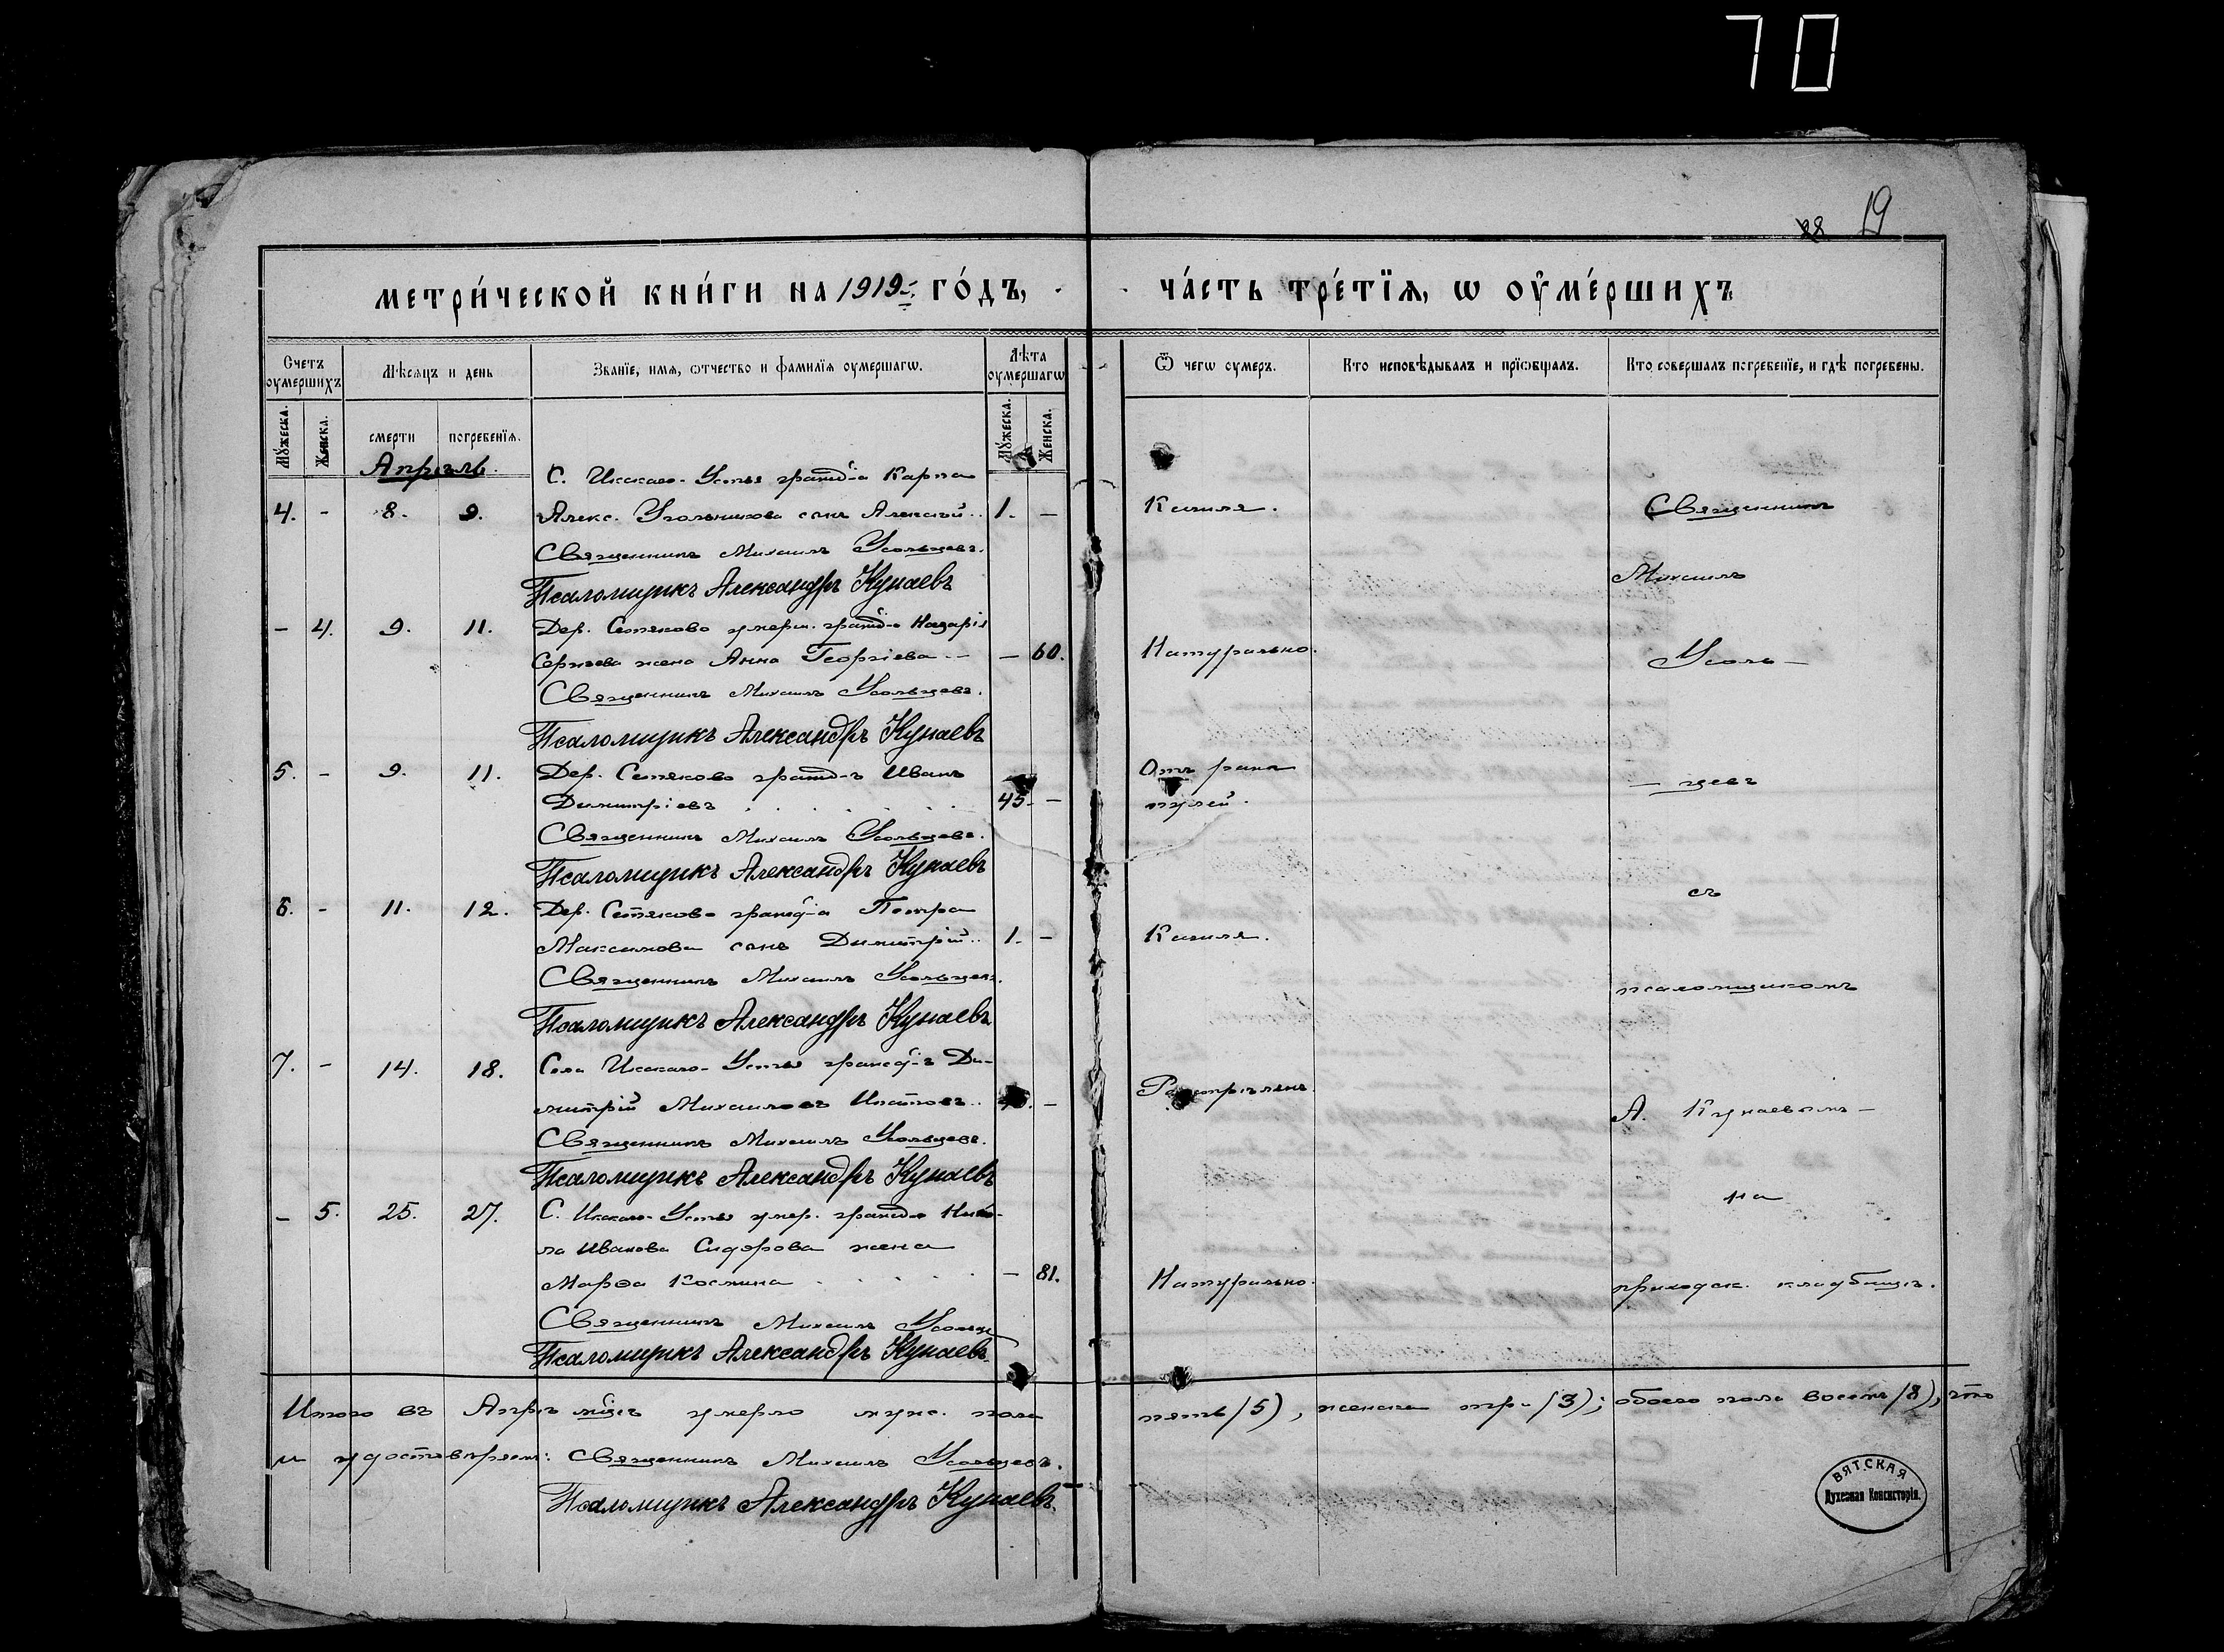 70
28 19
МЕТРИ́ЧЕСКОЙ КНИ́ГИ НА 1919 ГО́ДЪ,
ЧА́СТЬ ТРЕ́ТЇЯ, Ѡ ОУМЕ́РШИХЪ
Счетъ оумершихъ
Мѣсяцъ и день
Званїе, имя, ѻтчество и фамилїя оумершагѡ.
Лѣта оумершагѡ
Ѿ чегѡ оумеръ.
Кто исповѣдывалъ и прїѡбщалъ.
Кто совершалъ погребенїе, и гдѣ погребены.
Мꙋжеска.
Женска.
смерти
погребенїя.
Мꙋжеска.
Женска.
Апрѣль.
С. Икскаго-Устья гражд-а Карпа
4. - 8. 9. Алекс. Угольникова сынъ Алексій.. 1. — Кашля. Священникъ
Священникъ Михаилъ Усольцевъ.
Псаломщикъ Александръ Кунаевъ
Михаилъ
— 4. 9. 11. Дер. Сетяково умерш. гражд-а Назарія
Сергѣева жена Анна Георгіева — — 60. Натурально. Усоль —
Священникъ Михаилъ Усольцевъ.
Псаломщикъ Александръ Кунаевъ
5. - 9. 11. Дер. Сетяково гражд-ъ Иванъ Отъ раны — цевъ
Димитріевъ 45. — пулей.
Священникъ Михаилъ Усольцевъ.
Псаломщикъ Александръ Кунаевъ
съ
6. - 11. 12. Дер. Сетяково гражд-а Петра
Максимова сынъ Димитрій.. 1. — Кашля.
Священникъ Михаилъ Усольцевъ.
псаломщикомъ
Псаломщикъ Александръ Кунаевъ
7. - 14. 18. Села Икскаго-Устья гражд-ъ Ди-
митрій Михаиловъ Ипатовъ.. — Разстрѣлянъ. А. Кунаевымъ —
Священникъ Михаилъ Усольцевъ.
Псаломщикъ Александръ Кунаевъ
на
— 5. 25. 27. С. Икскаго-Устья умер. гражд-а Нико-
ла Иванова Сидорова жена
Марѳа Космина — 81. Натурально. приходск. кладбищѣ.
Священникъ Михаилъ Усольц
Псаломщикъ Александръ Кунаевъ.
Итого въ Апрѣ мцѣ умерло муж. пола пять (5), женска три (3); обоего пола восемь (8), что
и удостовѣряемъ: Священникъ Михаилъ Усольцевъ.
Псаломщикъ Александръ Кунаевъ.
ВЯТСКАЯ
Духовная Консисторія.